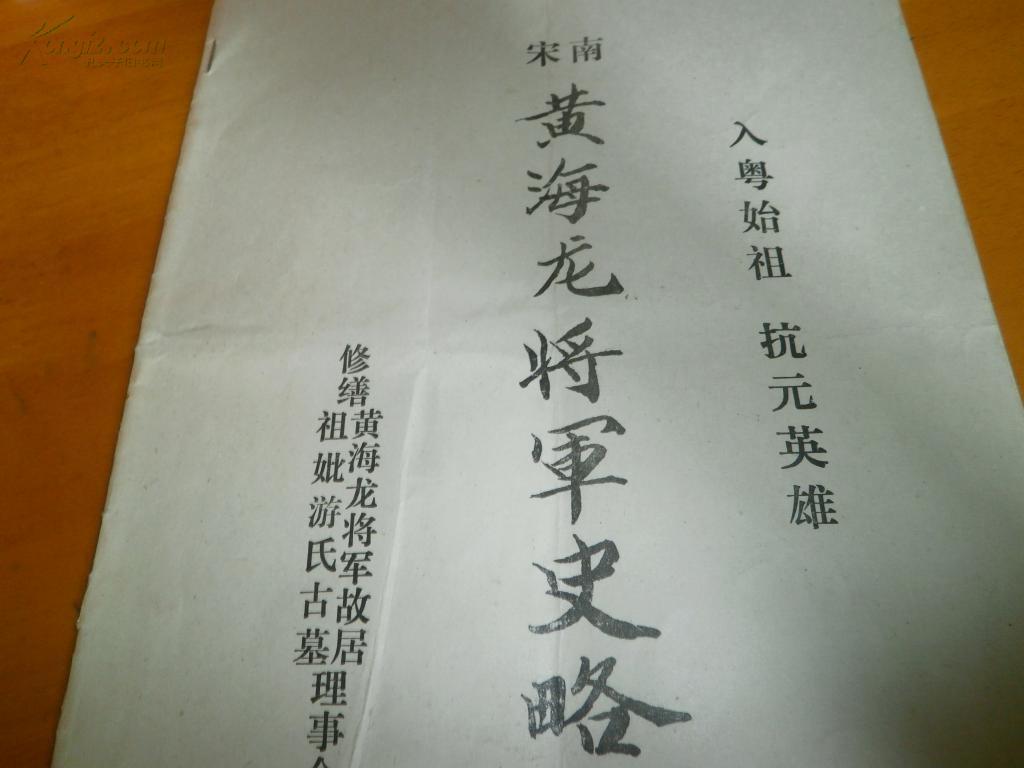 入粤始祖 抗元英雄
南宋
黄海龙将軍史略
修缮黄海龙将军故居
祖妣游氏古墓
理事
孔夫子旧书网